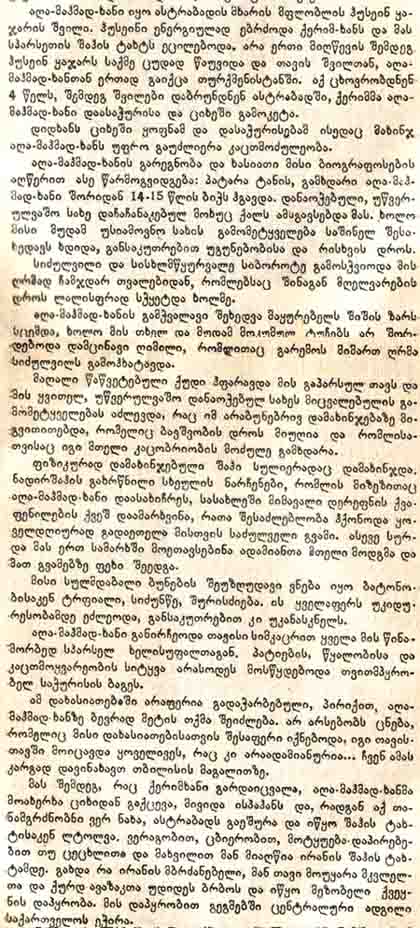 აღა-მაჰმად-ხანი იყო ასტრაბადის მხარის მფლობლის ჰუსეინ ყა-
ჯარის შვილი. ჰუსეინი ენერგიულად ებრძოდა ქერიმ-ხანს და მას
სპარსეთის შაჰის ტახტს ეცილებოდა. არა ერთი მიღწევის შემდეგ
ჰუსეინ ყაჯარს საქმე ცუდად წაუვიდა და თავის შვილთან, აღა-
მაჰმად-ხანთან ერთად გაიქცა თურქმენისტანში. აქ ცხოვრობდნენ
4 წელს, შემდეგ შვილები დაბრუნდნენ ასტრაბადში, ქერიმმა აღა-
მაჰმად-ხანი დაასაჭურისა და ციხეში გამოკეტა.
დიდხანს ციხეში ყოფნამ და დასაჭურისებამ ისედაც მახინჯ
აღა-მაჰმად-ხანს უფრო გაუძლიერა კაცთმოძულეობა.
აღა-მაჰმად-ხანის გარეგნობა და ხასიათი მისი ბიოგრაფოსების
აღწერით ასე წარმოგვიდგება: პატარა ტანის, გამხდარი აღა-მაჰ-
მად-ხანი შორიდან 14-15 წლის ბიჭს ჰგავდა. დანაოჭებული, უწვერ-
ულვაშო სახე დაჩაჩანაკებულ მოხუც ქალს ამსგავსებდა მას. ხოლო
მისი მუდამ უსიამოვნო სახის გამომეტყველება საშინელ შესა-
ხედავს ხდიდა, განსაკუთრებით უგუნებობისა და რისხვის დროს.
სიძულვილი და სისხლმწყურვალე სიბოროტე გამოსჭვიოდა მის
ღრმად ჩამჯდარ თვალებიდან, რომლებსაც შინაგან მღელვარების
დროს ლალისფრად სჭყეტდა ხოლმე.
აღა-მაჰმად-ხანის გამჭვალავი შეხედვა მაყურებელს შიშის ზარს
სცემდა, ხოლო მის თხელ და მუდამ მოკუმულ ტუჩებს არ შორ-
დებოდა დამცინავი ღიმილი, რომლითაც გარემოს მიმართ ღრმა
სიძულვილს გამოჰხატავდა.
მაღალი წაწვეტებული ქუდი ჰფარავდა მის გაპარსულ თავს და
მის ყვითელ, უწვერულვაშო დანაოჭებულ სახეს მიცვალებულის გა-
მომეტყველებას აძლევდა, რაც იმ არაბუნებრივ დამახინჯებაზე მი-
გვითითებდა, რომელიც ბავშვობის დროს მიუღია და რომლისა-
თვისაც იგი მთელი კაცობრიობის მოძულე გამხდარა.
ფიზიკურად დამახინჯებული შაჰი სულიერადაც დამახინჯდა.
ნადირშაჰის გახრწნილი სხეულის ნარჩენები, რომლის მიზეზითაც
აღა-მაჰმად-ხანი დაასახიჩრეს, სასახლეში მიმავალი დერეფნის ქვა-
ფენილების ქვეშ დაამარხვინა, რათა შესაძლებლობა ჰქონოდა ყო-
ველდღიურად გადაეთელა მისთვის საძულველი გვამი. ასევე სურ-
და მას ერთ სამარხში მოეთავსებინა ადამიანთა მთელი მოდგმა და
მათ გვამებზე ფეხი შეედგა.
მისი სულმდაბალი ბუნების შეუზღუდავი ვნება იყო ბატონო-
ბისაკენ ტრფიალი, სიძუნწე, შურისძიება. ის ყველაფერს უკიდუ-
რესობამდე ეძლეოდა, განსაკუთრებით კი უკანასკნელს.
აღა-მაჰმად-ხანი განირჩეოდა თავისი სიმკაცრით ყველა მის წინა-
მორბედ სპარსელ ხელისუფალთაგან. პატიების, წყალობისა და
კაცთმოყვარეობის სიტყვა არასოდეს მოსწყდებოდა თვითმპყრო-
ბელ საჭურისის ბაგეს.
ამ დახასიათებაში არაფერია გადაჭარბებული, პირიქით, აღა-
მაჰმად-ხანზე ბევრად მეტის თქმა შეიძლება. არ არსებობს ცნება,
რომელიც მისი დახასიათებისათვის შესაფერი იქნებოდა, იგი თავის-
თავში მოიცავდა ყოველივეს, რაც კი არაადამიანურია... ჩვენ ამას
კარგად დავინახავთ თბილისის მაგალითზე.
მას შემდეგ, რაც ქერიმხანი გარდაიცვალა, აღა-მაჰმად-ხანმა
მოახერხა ციხიდან გაქცევა, მივიდა ისპაჰანს და, რადგან აქ თა-
ნამგრძნობნი ვერ ნახა, ასტრაბადს გაეშურა და იწყო შაჰის ტახ-
ტისაკენ ლტოლვა. ვერაგობით, ცბიერობით, მოტყუება-დაპირებე-
ბით თუ ცეცხლითა და მახვილით მან მიაღწია ირანის შაჰის ტახ-
ტამდე. გახდა რა ირანის მბრძანებელი, მან თავი მოუყარა მკვლელ-
თა და ქურდ-ავაზაკთა უდიდეს ბრბოს და იწყო მეზობელი ქვეყ-
ნის დაპყრობა. მის დაპყრობით გეგმებში ცენტრალური ადგილი
საქართველოს ეჭირა.